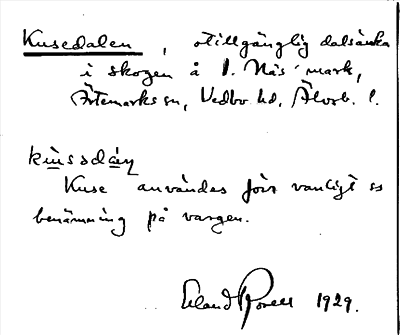 Kusedalen, otillgänglig dalsänka
i skogen å I. Näs' mark,
Ärtemarks sn, Vedbo hd, Älvsb. l.
Kuse användes förr vanligt ss
benämning på vargen.
Erland Borell 1929.